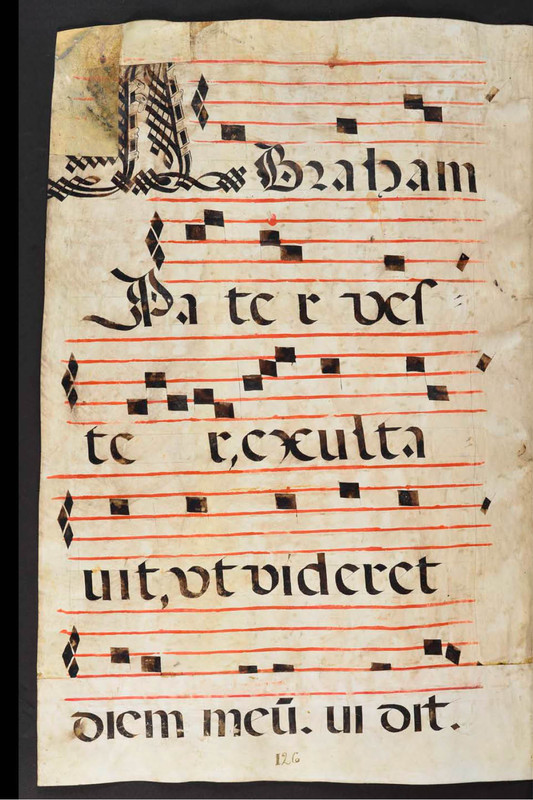 ABraham
Pa te r ves
te r, exulta
uit, vt videret
diem meū. ui dit.
126